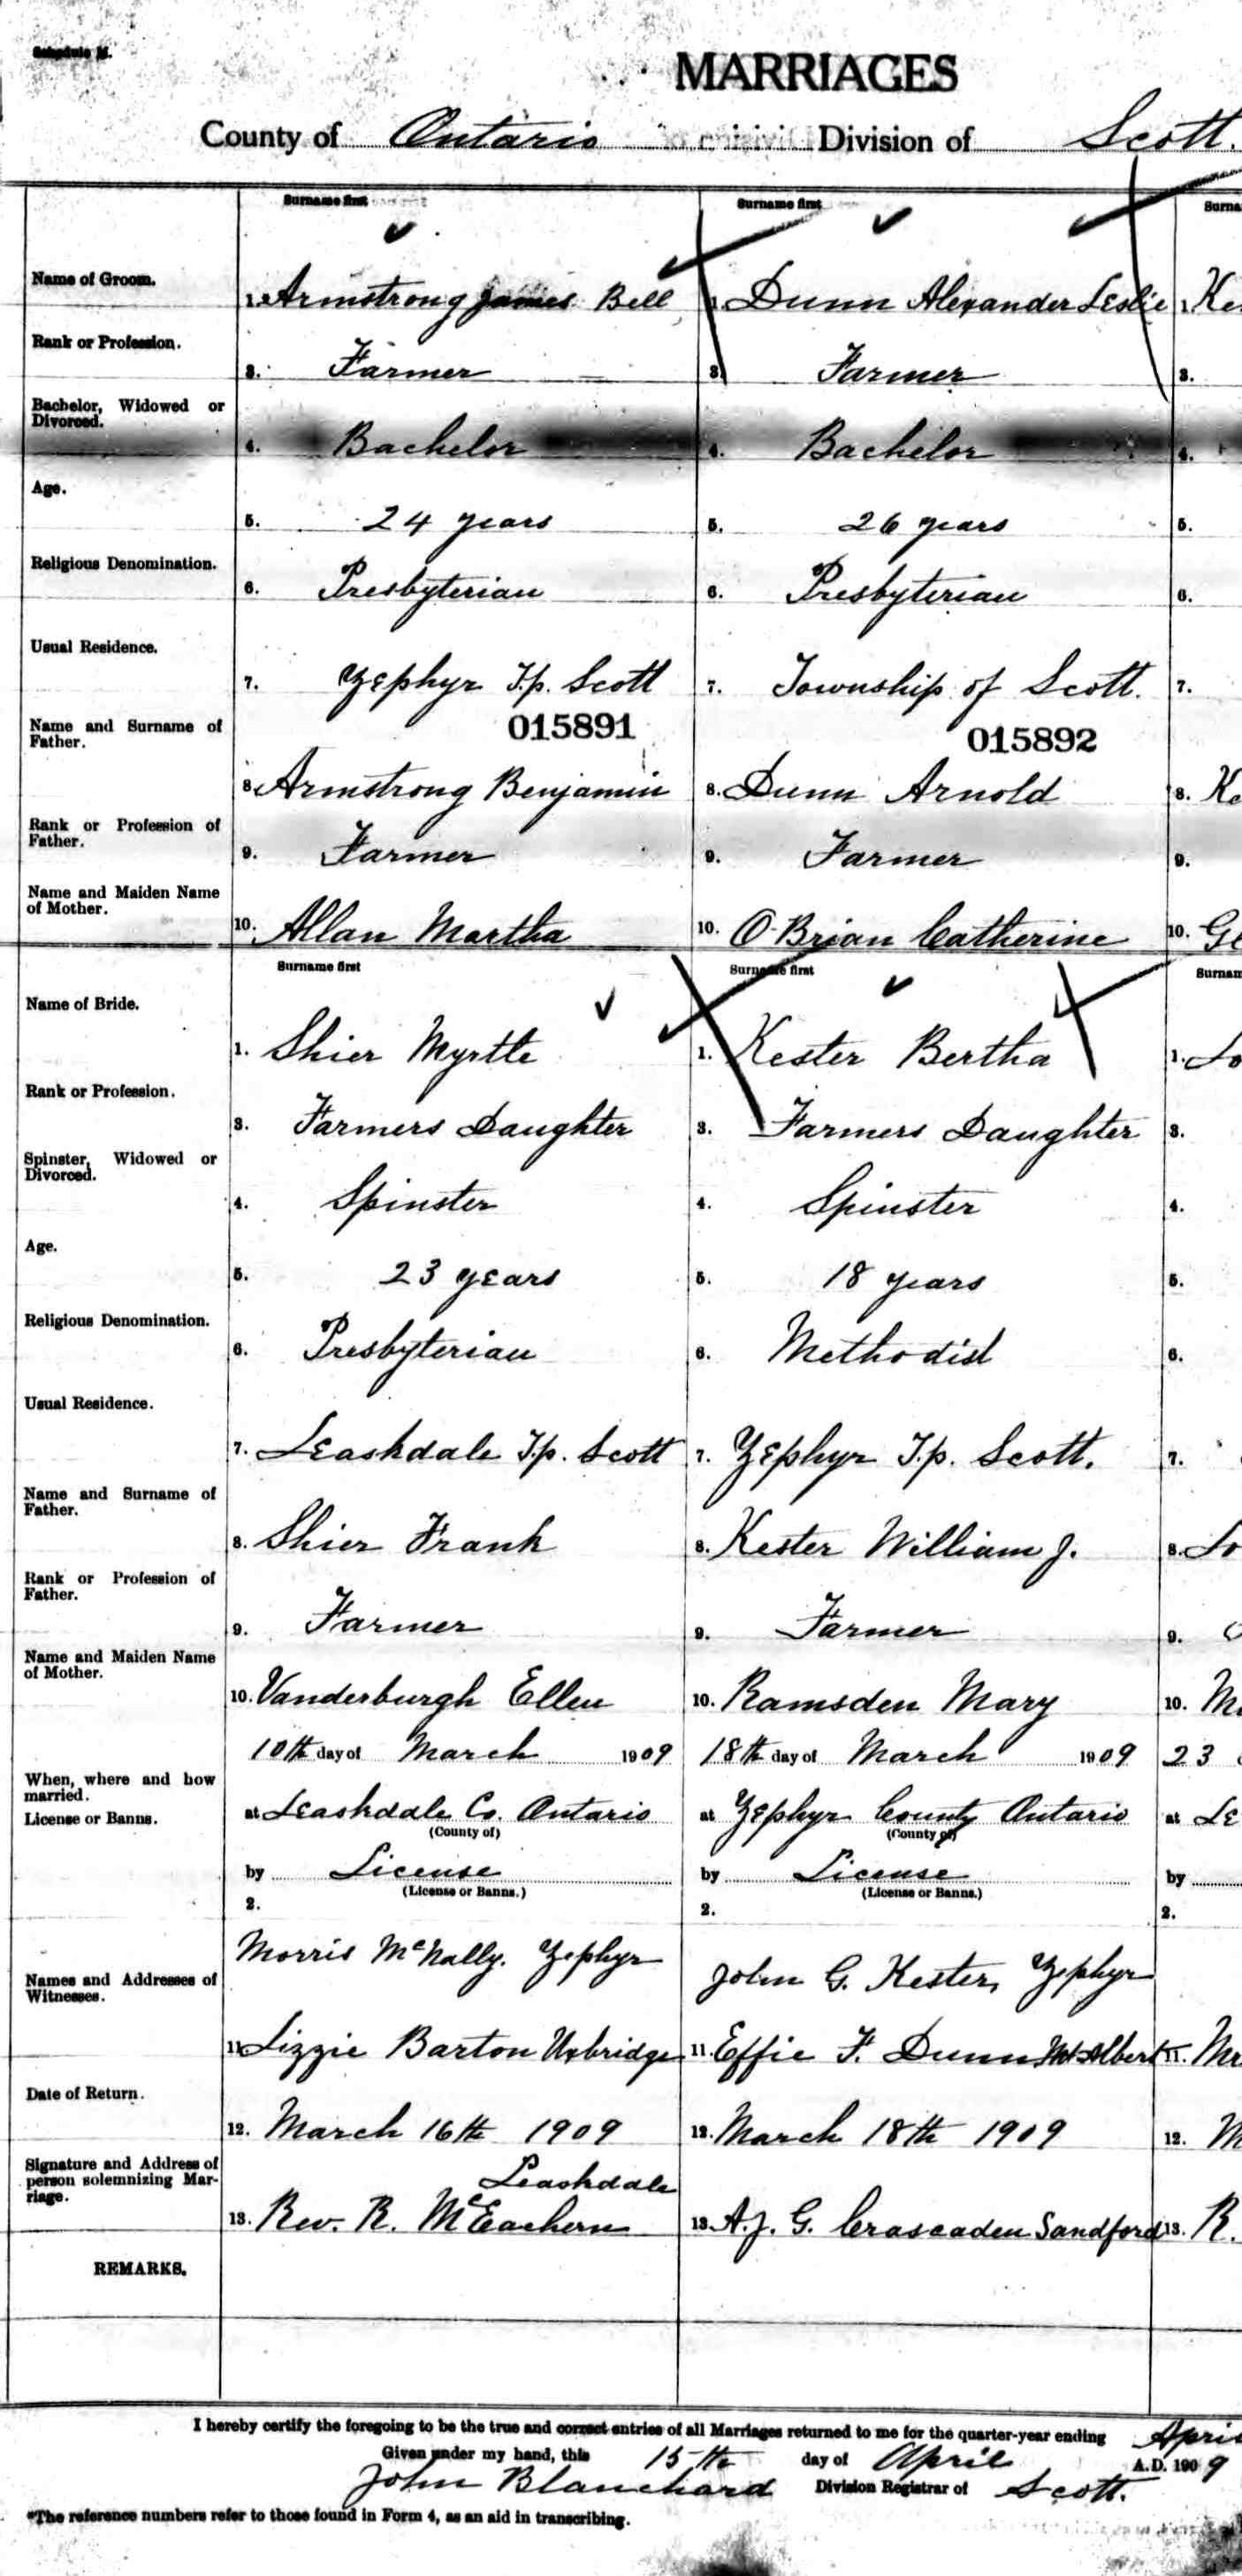 Schedule M.
MARRIAGES
County of Ontario Division of Scott.
Surname first Surname first Surna
Name of Groom. 1. Armstrong James Bell 1. Dunn Alexander Leslie 1. Ke
Rank or Profession. 3. Farmer 3. Farmer 3.
Bachelor, Widowed or
Divorced. 4. Bachelor 4. Bachelor 4.
Age. 5. 24 years 5. 26 years 5.
Religious Denomination. 6. Presbyterian 6. Presbyterian 6.
Usual Residence. 7. Zephyr T.p. Scott 7. Township of Scott. 7.
015891 015892
Name and Surname of
Father. 8. Armstrong Benjamin 8. Dunn Arnold 8. Ke
Rank or Profession of
Father. 9. Farmer 9. Farmer 9.
Name and Maiden Name
of Mother. 10. Allan Martha 10. O'Brian Catherine 10. Ge
Surname first Surname first Surnam
Name of Bride. 1. Shier Myrtle 1. Kester Bertha 1. Lo
Rank or Profession. 3. Farmers Daughter 3. Farmers Daughter 3.
Spinster, Widowed or
Divorced. 4. Spinster 4. Spinster 4.
Age. 5. 23 years 5. 18 years 5.
Religious Denomination. 6. Presbyterian 6. Methodist 6.
Usual Residence. 7. Leaskdale T.p. Scott 7. Zephyr T.p. Scott. 7.
Name and Surname of
Father. 8. Shier Frank 8. Kester William J. 8. Lo
Rank or Profession of
Father. 9. Farmer 9. Farmer 9.
Name and Maiden Name
of Mother. 10. Vanderburgh Ellen 10. Ramsden Mary 10. M
10th day of March 1909 18th day of March 1909 23
When, where and how
married.
License or Banns. at Leaskdale Co. Ontario at Zephyr County Ontario at Le
(County of) (County of)
by License by License by
(License or Banns.) (License or Banns.)
2. 2. 2.
Morris McNally. Zephyr John G. Kester, Zephyr
Names and Addresses of
Witnesses.
11. Lizzie Barton Uxbridge 11. Effie F. Dunn Mt Albert 11. Mr
Date of Return. 12. March 16th 1909 12. March 18th 1909 12. M
Signature and Address of
person solemnizing Mar-
riage. Leaskdale
13. Rev. R. McEachern 13. A.J. G. Crascaden Sandford 13. R.
REMARKS.
I hereby certify the foregoing to be the true and correct entries of all Marriages returned to me for the quarter-year ending April
Given under my hand, this 15th day of April A.D. 1909
John Blanchard Division Registrar of Scott.
*The reference numbers refer to those found in Form 4, as an aid in transcribing.